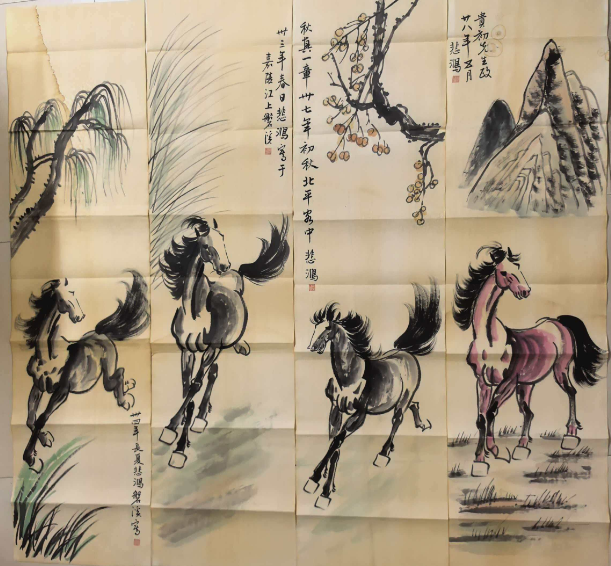 貴初先生政
廿八年五月
悲鴻
秋真一章卅七年初秋北平客中悲鴻
卅三年春日悲鴻寫于
嘉陵江上磐溪
卅四年長夏悲鴻磐溪寫